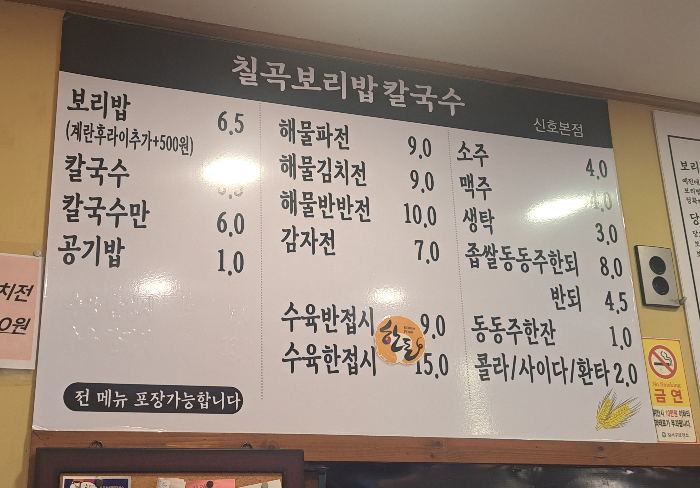 칠곡보리밥칼국수
신호본점
보리밥 6.5
(계란후라이추가+500원)
칼국수
칼국수만 6.0
공기밥 1.0
전 메뉴 포장가능합니다
해물파전 9.0
해물김치전 9.0
해물반반전 10.0
감자전 7.0
수육반접시 9.0
수육한접시 15.0
한돈
소주 4.0
맥주 4.0
생탁 3.0
좁쌀동동주한되 8.0
반되 4.5
동동주한잔 1.0
콜라/사이다/환타 2.0
치전
0원
보리
No Smoking
금연